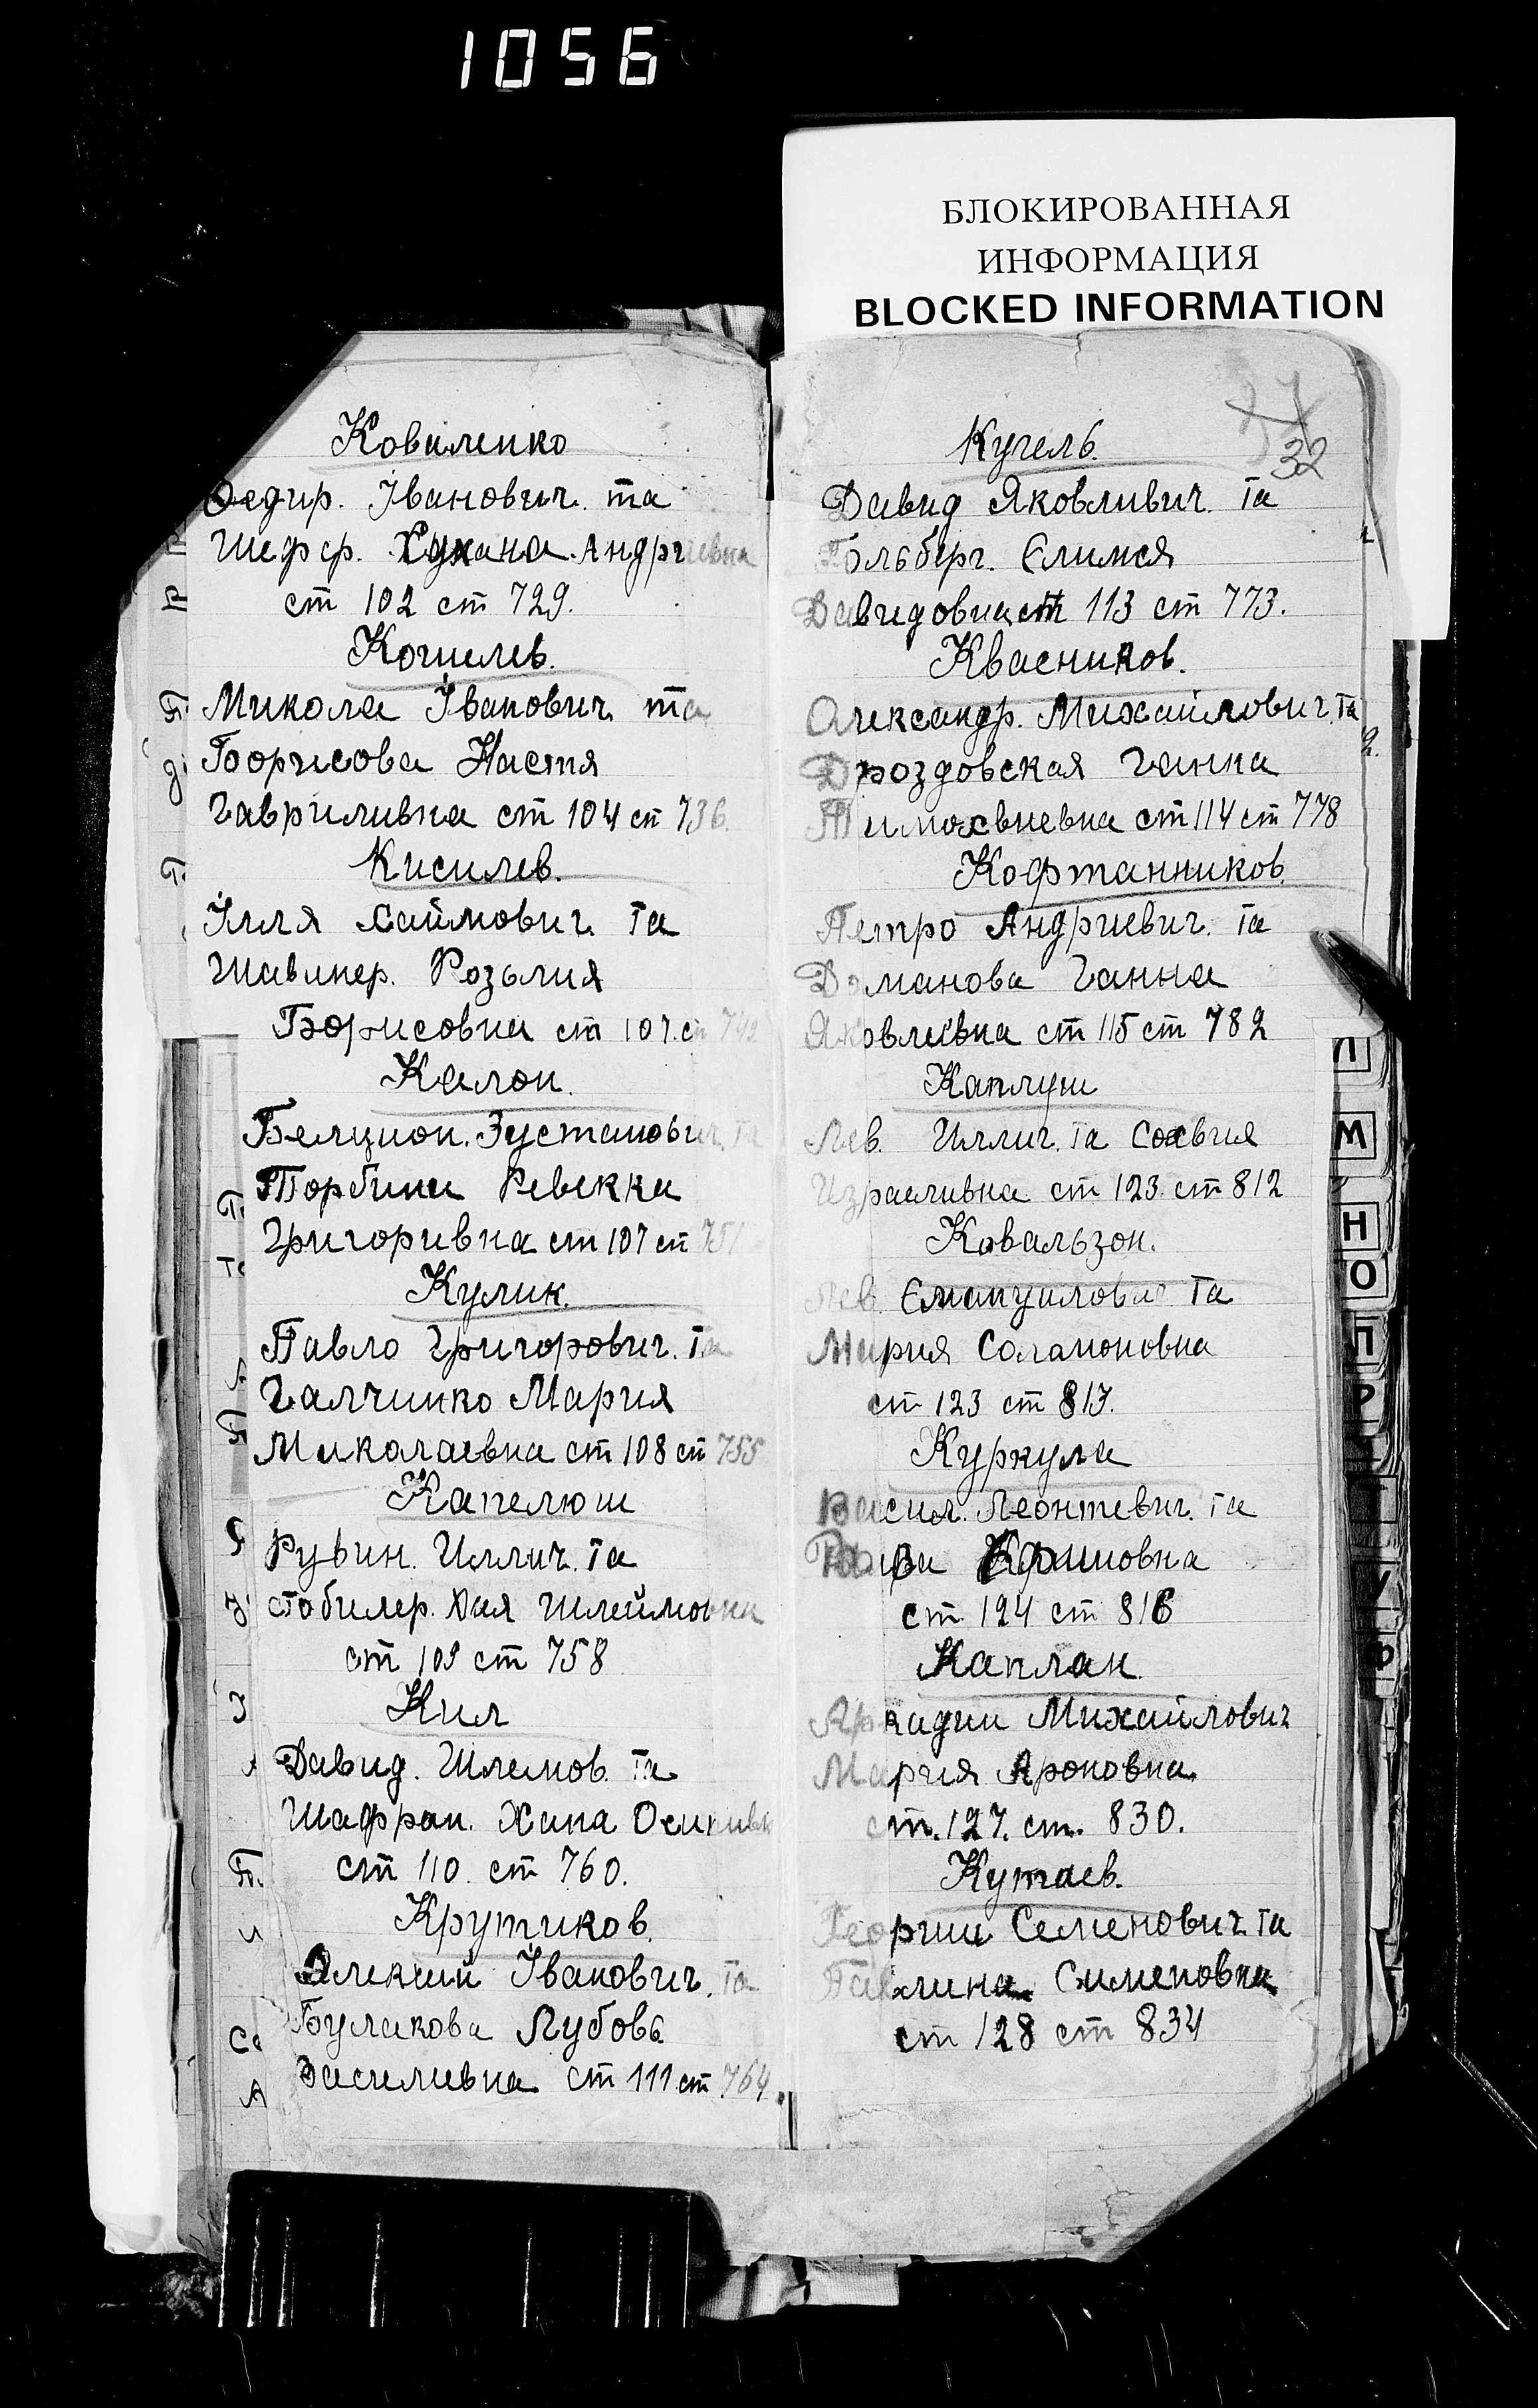 1056
БЛОКИРОВАННАЯ
ИНФОРМАЦИЯ
BLOCKED INFORMATION
Коваленко
Федир. Іванович. та
Шефер. Андриевна
ст 102 ст 729.
Кошелев.
Микола Іванович та
Борисова Настя
Гавриливна ст 104 ст 736.
Кисилев.
Ілля Хаймович та
Розалия
Борисовна ст 107. ст 742
Калон.
Белцион. та
Торбина Ревекка
Григоривна ст 107 ст 751
Кулик.
Павло Григорович. та
Галчинко Мария
Миколаевна ст 108 ст 755
Капелюш
Рувин. Иллич. та
Стобилер. Хая Шлеймовна
ст 109 ст 758
Кил
Давид. Шлемов. та
Шафран. Хана Осиповн
ст 110. ст 760.
Крутиков.
Алексий Іванович. та
Булакова Лубовь
Василивна ст 111 ст 764
32
Кугель.
Давид Яковливич. та
Гольберг. Єлимея
Давидовна ст 113 ст 773.
Квасников.
Олександр. Михайлович. та
Дроздовская Ганна
Тимохвиевна ст 114 ст 778
Кофтанников.
Петро Андриевич. та
Доманова Ганна
Яковливна ст 115 ст 782
Каплун
Лев. Иллич. та Сохвия
Израиливна ст 123. ст 812
Ковальзон.
Лев. Емануилович та
Мария Соламоновна
ст 123 ст 813.
Куркула
Васил. Леонтевич. та
Ефимовна
ст 124 ст 816
Каплан
Аркадии Михайлович
Мария Ароновна
ст. 127. ст. 830.
Кутаев.
Георгии Семенович та
Галина Сименовна
ст 128 ст 834
Л
М
Н
О
П
Р
У
Ф